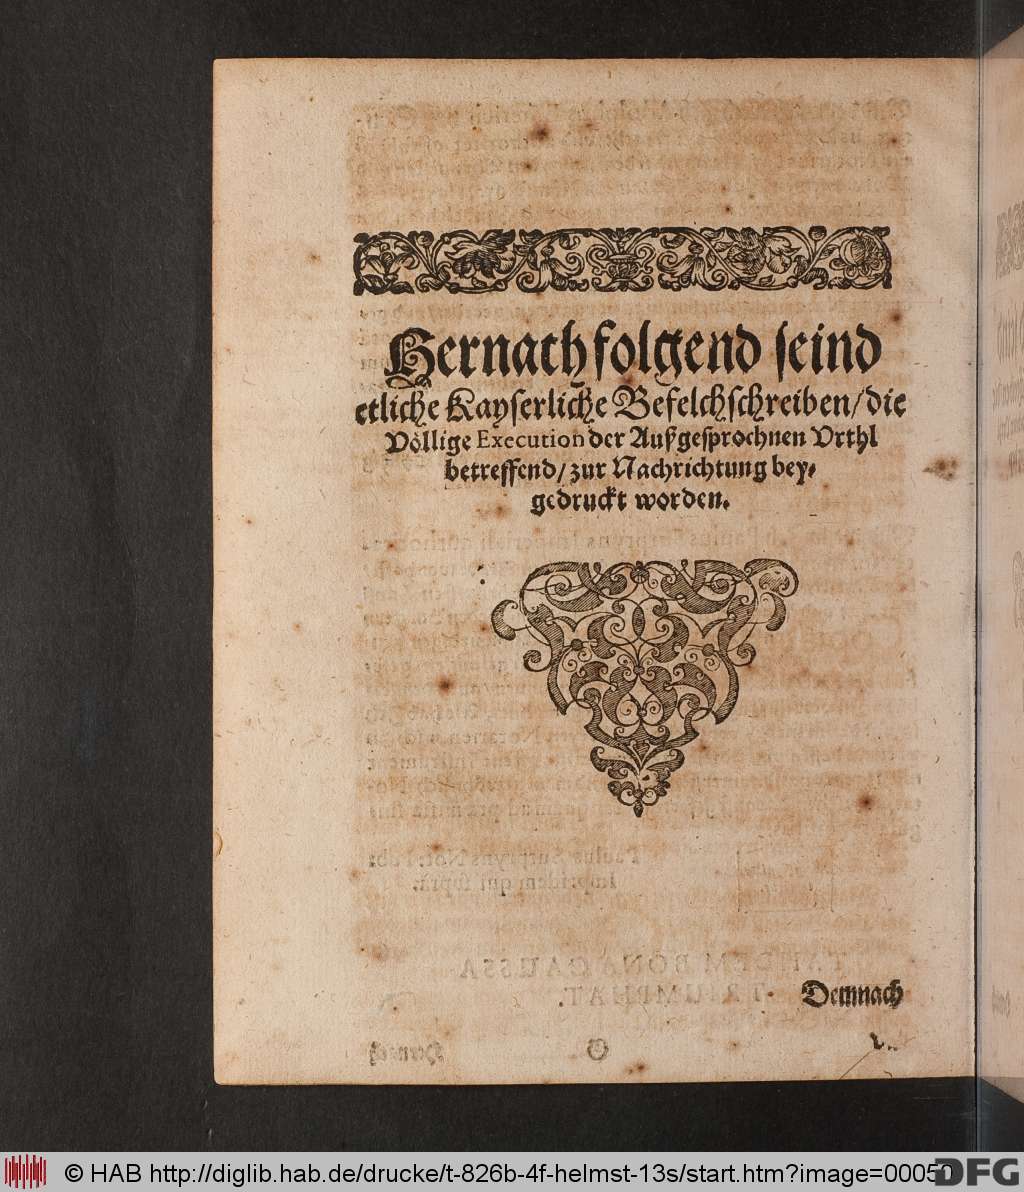 Hernach folgend seind
etliche Kayserliche Befelchschreiben/ die
Völlige Execution der Außgesprochnen Vrthl
betreffend/ zur Nachrichtung bey-
gedruckt worden.
Demnach
© HAB http://diglib.hab.de/drucke/t-826b-4f-helmst-13s/start.htm?image=00050
DFG